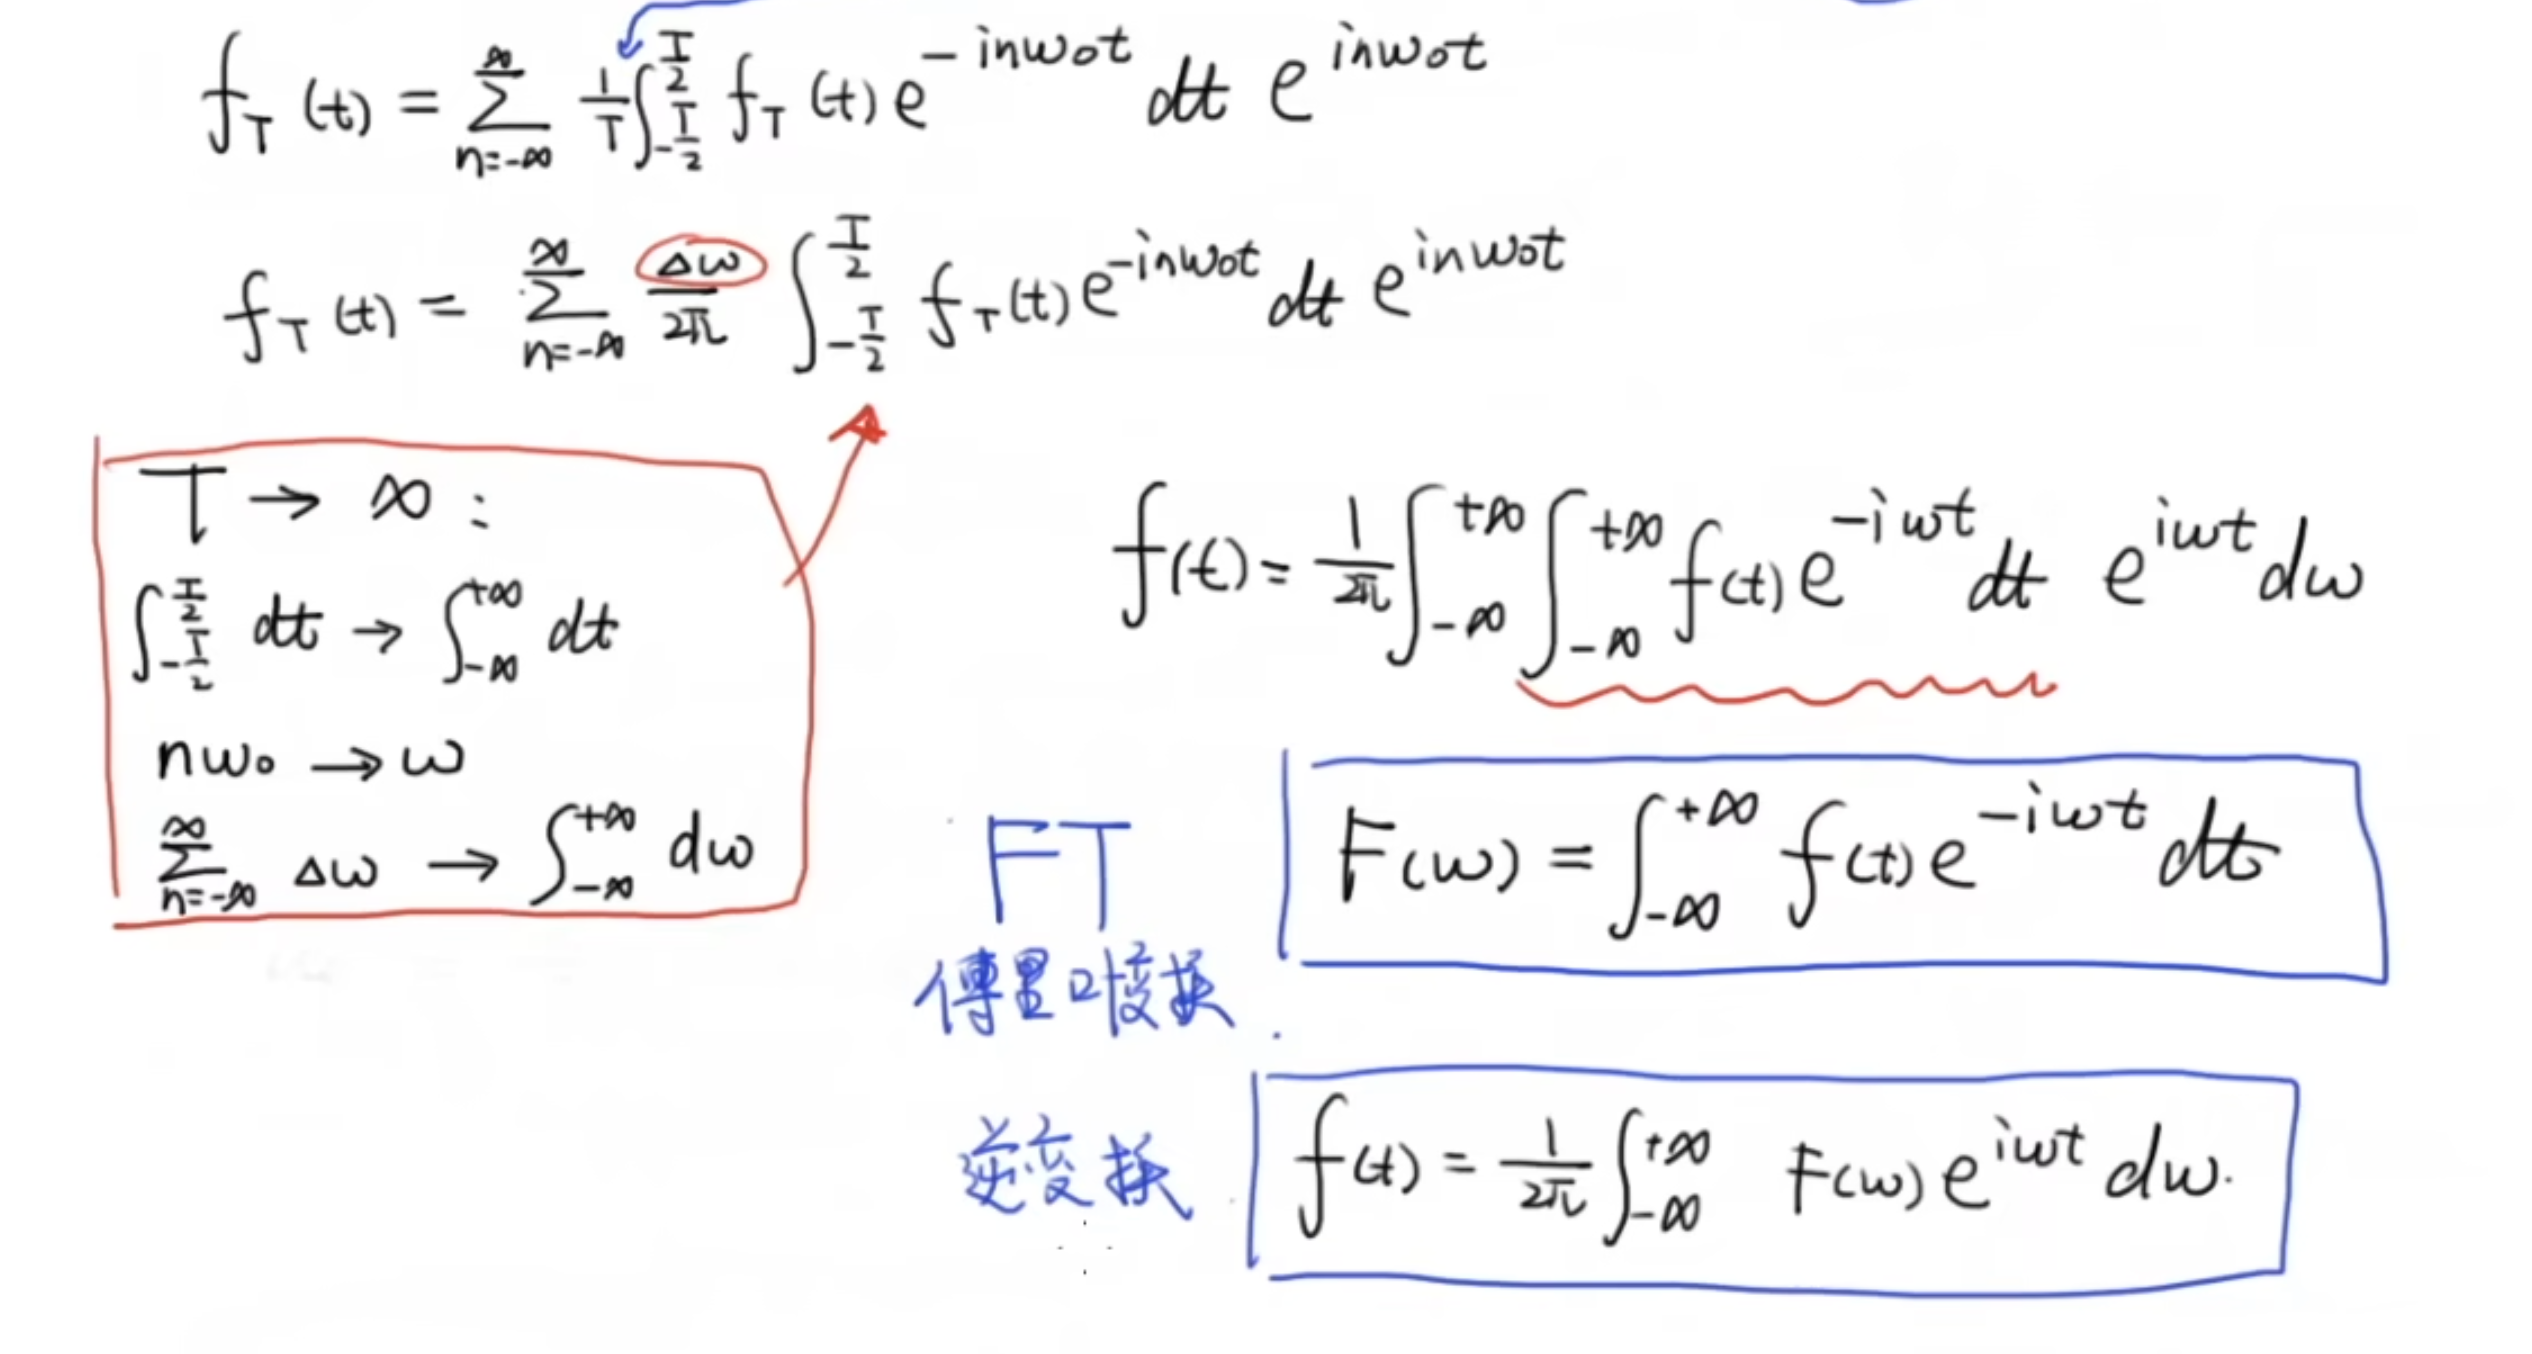 f_T(t) = \sum_{n=-∞}^{∞} \frac{1}{T} \int_{-\frac{T}{2}}^{\frac{T}{2}} f_T(t) e^{-inω_0t} dt e^{inω_0t}
f_T(t) = \sum_{n=-∞}^{∞} \frac{Δω}{2π} \int_{-\frac{T}{2}}^{\frac{T}{2}} f_T(t) e^{-inω_0t} dt e^{inω_0t}
T → ∞ :
\int_{-\frac{T}{2}}^{\frac{T}{2}} dt → \int_{-∞}^{+∞} dt
nω_0 → ω
\sum_{n=-∞}^{∞} Δω → \int_{-∞}^{+∞} dω
f(t) = \frac{1}{2π} \int_{-∞}^{+∞} \int_{-∞}^{+∞} f(t) e^{-iωt} dt e^{iωt} dω
FT
傅里叶变换
F(ω) = \int_{-∞}^{+∞} f(t) e^{-iωt} dt
逆变换
f(t) = \frac{1}{2π} \int_{-∞}^{+∞} F(ω) e^{iωt} dω.